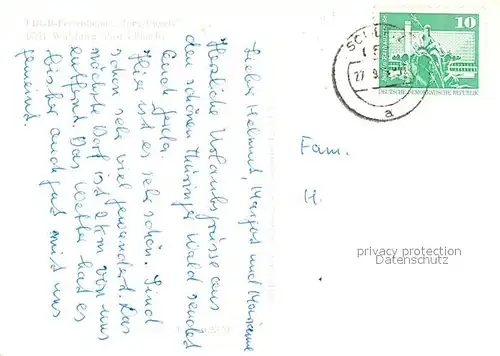 Liebe Helmut, Margot und Marianne
Herzliche Urlaubsgrüsse aus
den schönen Thüringer Wald sendet
Euch
Hier ist es sehr schön. Sind
schon sehr viel gewandert. Das
nächste Dorf ist 2 km von uns
entfernt. Das Wetter hat es
bisher auch gut mit uns
gemeint.
Fam.
H.
10
DEUTSCHE DEMOKRATISCHE REPUBLIK
a
privacy protection
Datenschutz